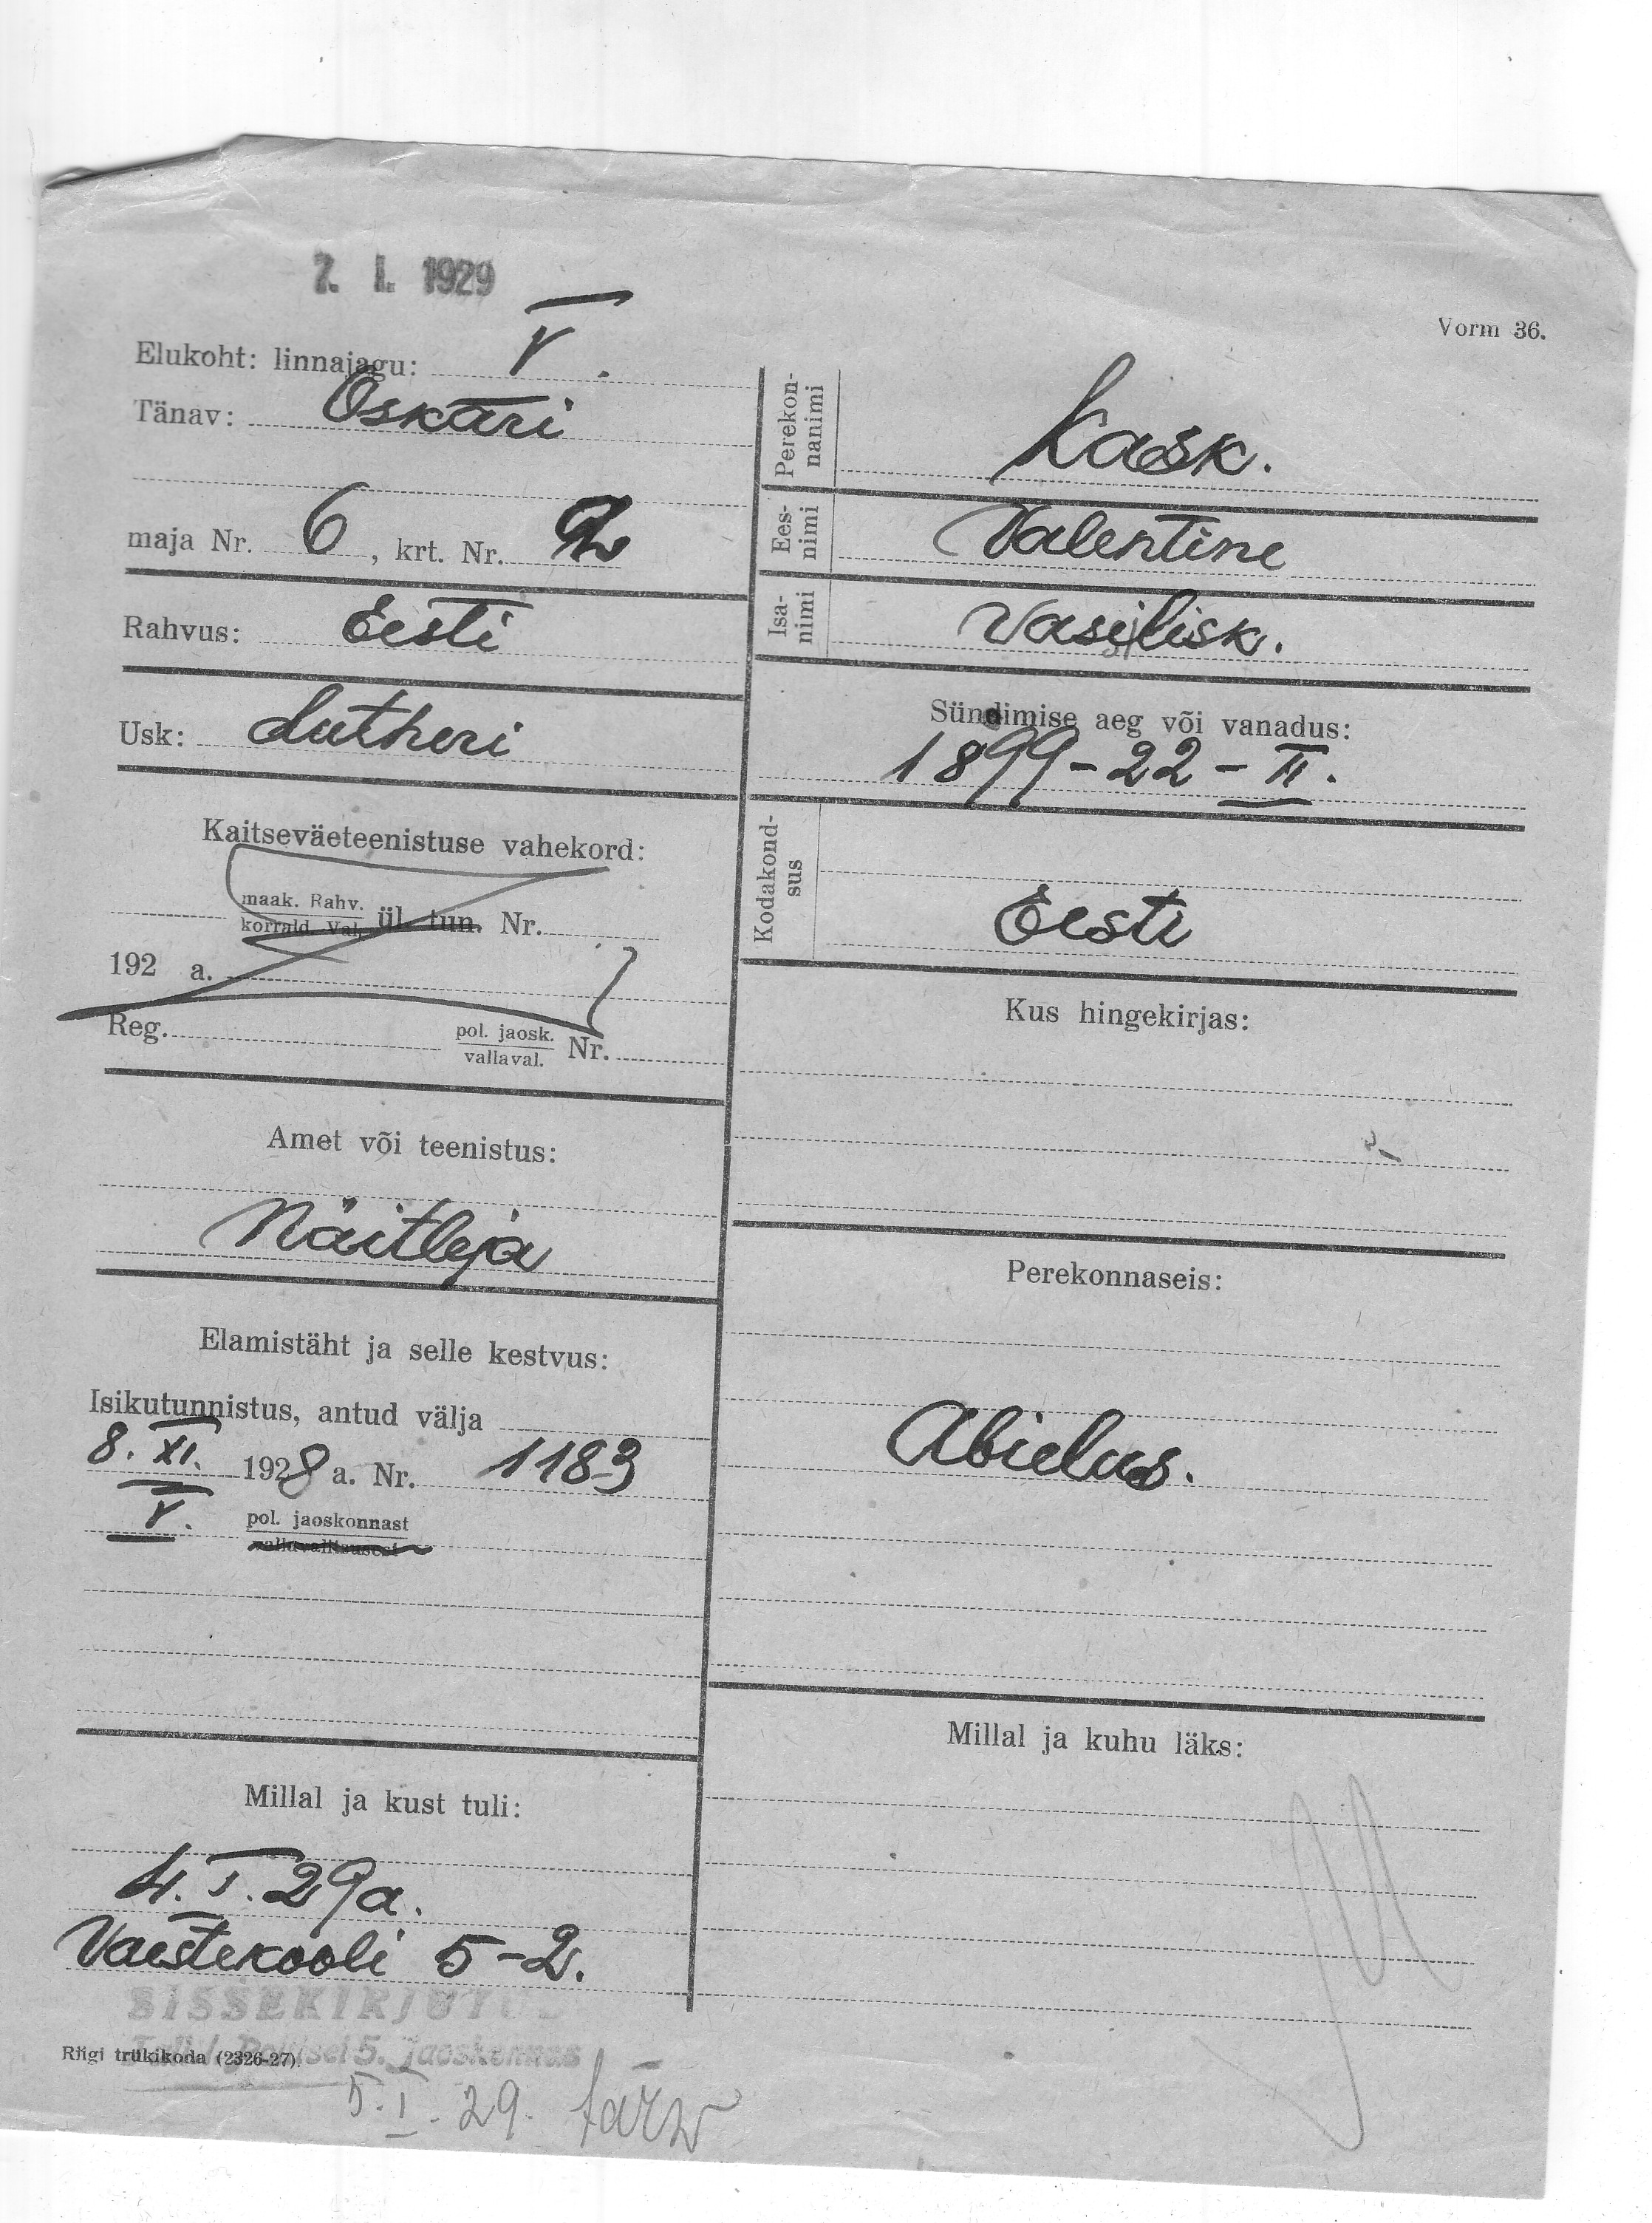 7. I. 1929
Vorm 36.
Elukoht: linnajagu: V.
Tänav: Oskari
maja Nr. 6, krt. Nr. 2
Rahvus: Eesti
Usk: Lutheri
Kaitseväeteenistuse vahekord:
maak. Rahv.
korrald. Val. ül. tun. Nr.
192 a.
Reg. pol. jaosk.
vallaval. Nr.
Amet või teenistus:
Näitleja
Elamistäht ja selle kestvus:
Isikutunnistus, antud välja
8. XI. 1928 a. Nr. 1183
V. pol. jaoskonnast
vallavalitsusest
Millal ja kust tuli:
4. I. 29a.
Vaestekooli 5-2.
SISSEKIRJUTUD
Riigi trükikoda (2326-27).
5. jaoskonnas
5. I. 29.
Perekon-
nanimi
Kask.
Ees-
nimi
Valentine
Isa-
nimi
Vasilisk.
Sündimise aeg või vanadus:
1899-22-II.
Kodakond-
sus
Eesti
Kus hingekirjas:
Perekonnaseis:
Abielus.
Millal ja kuhu läks: